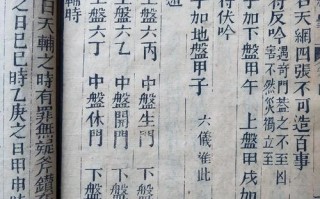 天網四張不可造百事
符反吟 遇奇門蓋之不至凶
害不然災禍立至
子加下盤甲午 上盤甲戌加
符伏吟
子加地盤甲子 六儀准此
上盤六丙 中盤生門 下盤
上盤六丁 中盤開門 下盤
上盤六乙 中盤休門 下盤
輔時
日天輔之時有罪無疑斧鑕在
之日己巳時乙庚之日甲申時